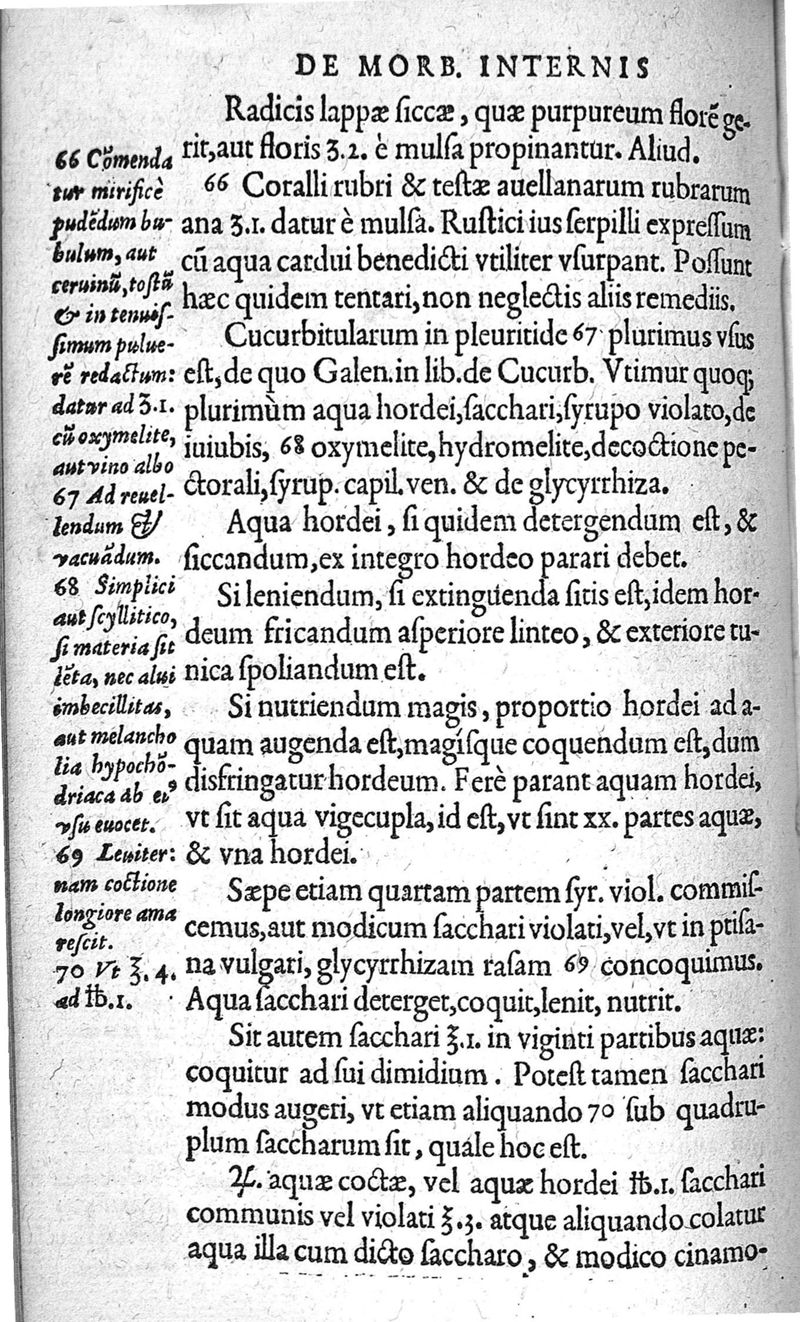 DE MORB. INTERNIS
Radicis lappæ ſiccæ, quæ purpureum florē ge-
rit, aut floris ʒ.2. è mulſa propinantur. Aliud.
66 Coralli rubri & teſtæ auellanarum rubrarum
ana ʒ.1. datur è mulſa. Ruſtici ius ſerpilli expreſſum
cū aqua cardui benedicti vtiliter vſurpant. Poſſunt
hæc quidem tentari, non neglectis aliis remediis.
Cucurbitularum in pleuritide 67 plurimus vſus
eſt, de quo Galen. in lib. de Cucurb. Vtimur quoq;
plurimùm aqua hordei, ſacchari, ſyrupo violato, de
iuiubis, 68 oxymelite, hydromelite, decoctione pe-
ctorali, ſyrup. capil. ven. & de glycyrrhiza.
Aqua hordei, ſi quidem detergendum eſt, &
ſiccandum, ex integro hordeo parari debet.
Si leniendum, ſi extinguenda ſitis eſt, idem hor-
deum fricandum aſperiore linteo, & exteriore tu-
nica ſpoliandum eſt.
Si nutriendum magis, proportio hordei ad a-
quam augenda eſt, magíſque coquendum eſt, dum
disfringatur hordeum. Ferè parant aquam hordei,
vt ſit aqua vigecupla, id eſt, vt ſint xx. partes aquæ,
& vna hordei.
Sæpe etiam quartam partem ſyr. viol. commiſ-
cemus, aut modicum ſacchari violati, vel, vt in ptiſa-
na vulgari, glycyrrhizam raſam 69 concoquimus.
Aqua ſacchari deterget, coquit, lenit, nutrit.
Sit autem ſacchari ℥.1. in viginti partibus aquæ:
coquitur ad ſui dimidium. Poteſt tamen ſacchari
modus augeri, vt etiam aliquando 70 ſub quadru-
plum ſaccharum ſit, quale hoc eſt.
℞. aquæ coctæ, vel aquæ hordei ℔.1. ſacchari
communis vel violati ℥.3. atque aliquando colatur
aqua illa cum dicto ſaccharo, & modico cinamo-
66 Cōmenda
tur mirificè
pudēdum bu-
bulum, aut
ceruinū, toſtū
& in tenuiſ-
ſimum pulue-
rē redactum:
datur ad ʒ.1.
cū oxymelite,
aut vino albo
67 Ad reuel-
lendum &
vacuādum.
68 Simplici
aut ſcyllitico,
ſi materia ſit
lēta, nec alui
imbecillitas,
aut melancho
lia hypochō-
driaca ab eiꝰ
vſu euocet.
69 Leuiter:
nam coctione
longiore ama
reſcit.
70 Vt ℥.4.
ad ℔.1.